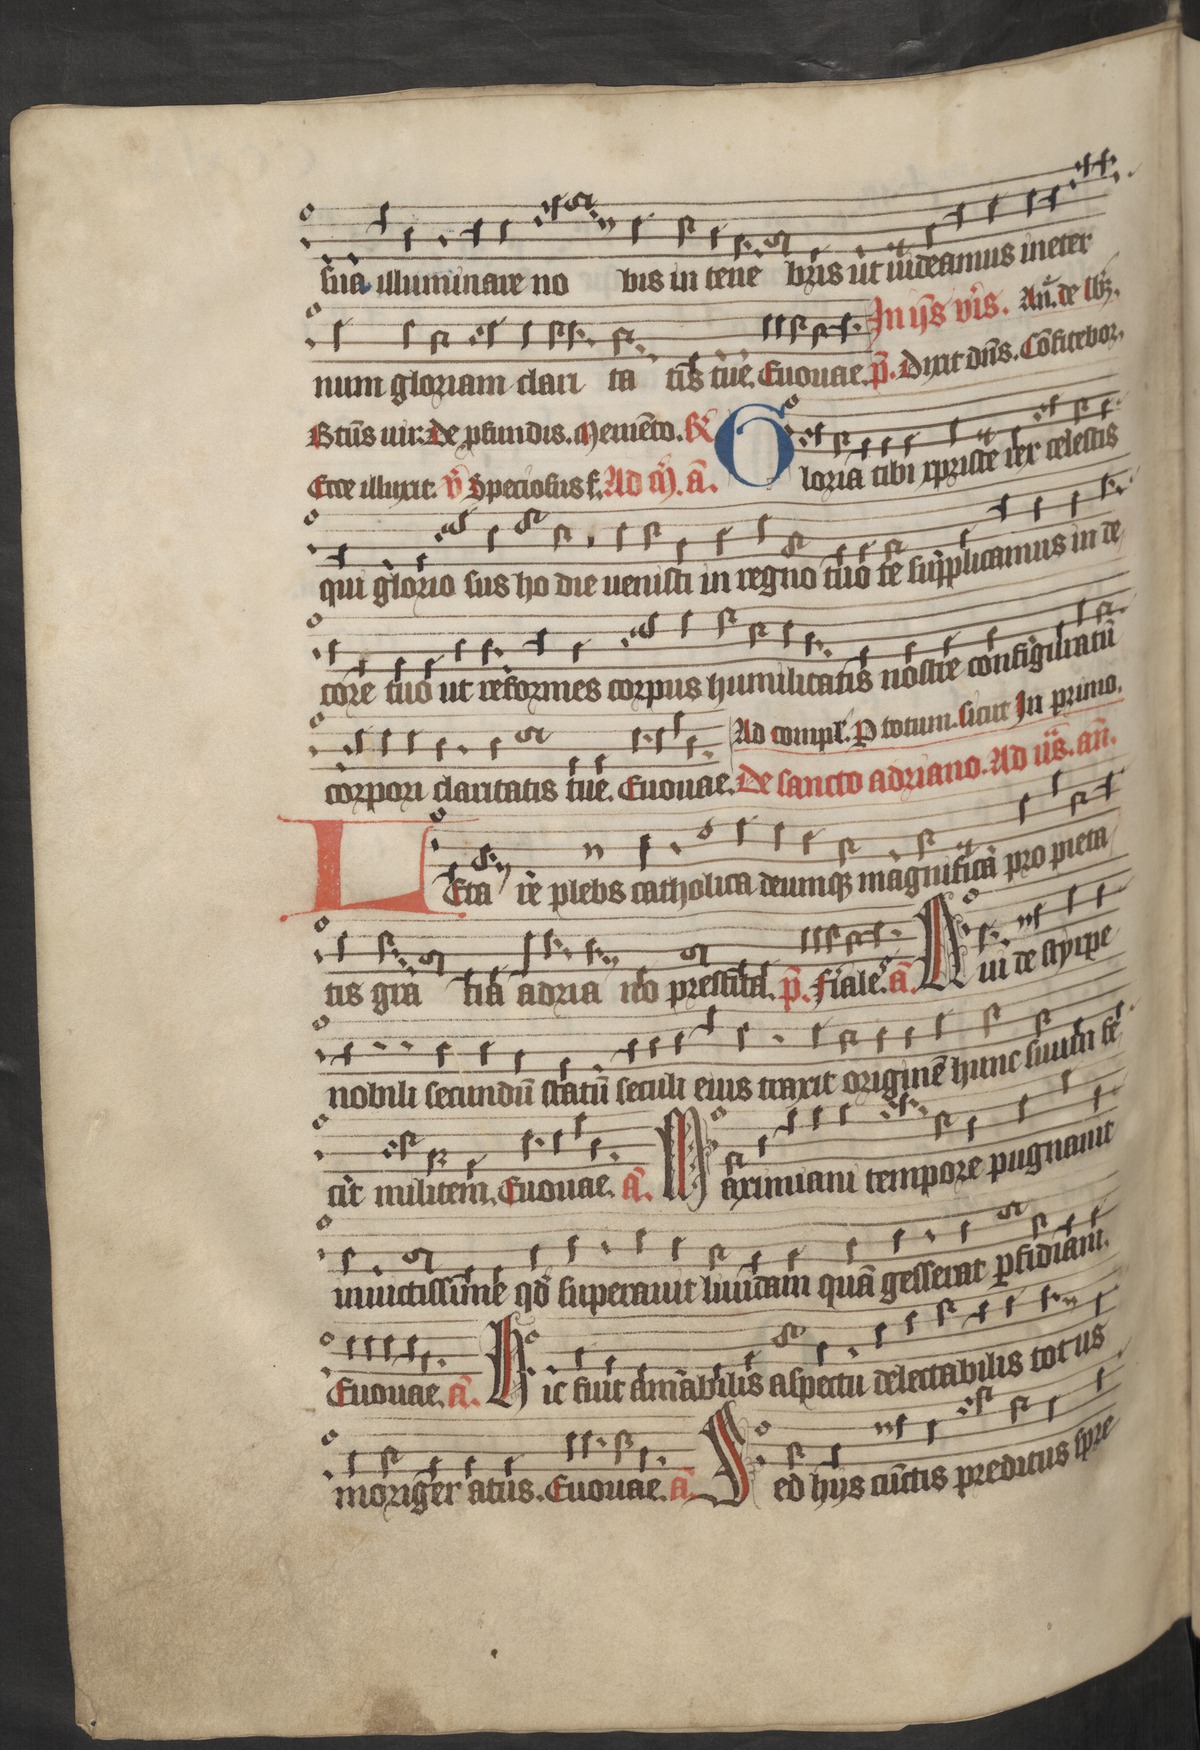 sua illuminare no bis in tene bris ut uideamus in eter
In ijs vris. Añ. de lbz.
num gloriam clari ta tis tue. Euouae. p̄. Dixit dñs. Cōfitebor.
Btūs uir. De pfundis. Memēto. R̄
Ecce illuxit. v̄ Speciosus f. Ad m̄. ā. Gloria tibi xpriste rex celestis
qui glorio sus ho die uenisti in regno tuo te supplicamus in de
core tuo ut reformes corpus humilitatis nostre configuratū
Ad compl. P totum. sicut In primo.
corpori claritatis tue. Euouae. De sancto adriano. Ad ijs. añ.
LEta re plebs catholica deumqz magnifica pro pieta
tis gra tia adria no prestita. p̄. Fiale. ā. Aui de styrpe
nobili secundū statū seculi eius traxit originē hunc suum fe
cit militem. Euouae. ā. Maximiani tempore pugnauit
inuictissime qd superauit liuidam quā gesserat pfidiam.
Euouae. ā. Hic fuit amabilis aspectu delectabilis totus
moriger atus. Euouae. ā. Sed hijs cūctis preditus spre